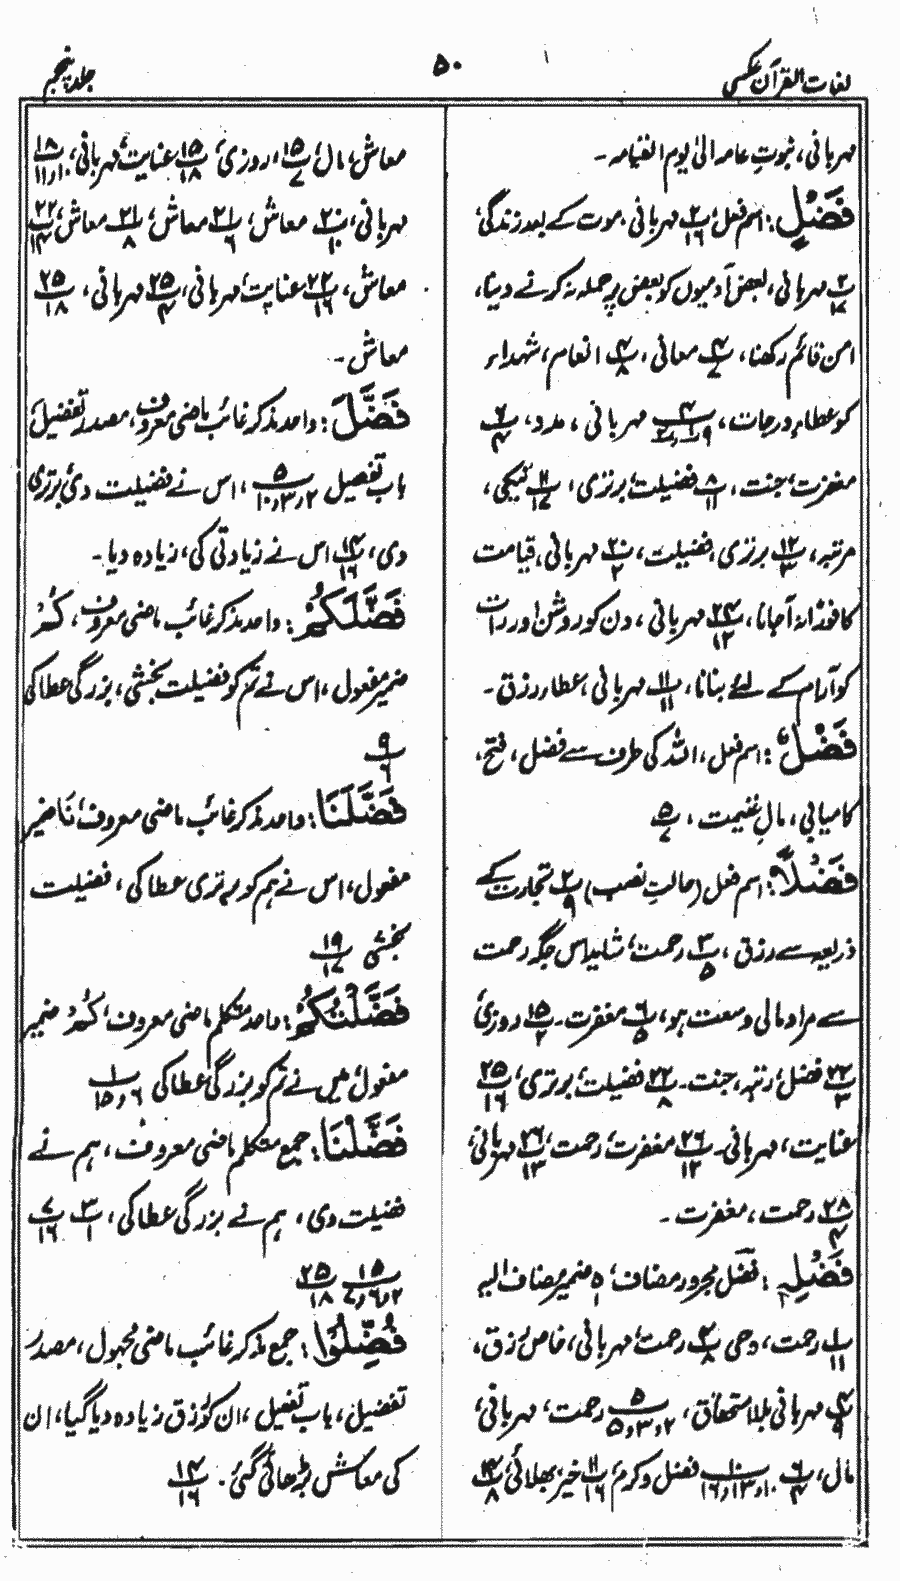 لغات القرآن عکسی
۵۰
جلد پنجم
مہربانی، ثبوتِ عامہ الیٰ یوم القیامہ ۔
فَضْلٍ : اسم فعل، ۲/۱۶ مہربانی . موت کے بعد زندگی،
۲/۱۷ مہربانی، بعض آدمیوں کو بعض پر حملہ نہ کرنے دینا،
امن قائم رکھنا، ۴/۷ معافی، ۴/۸ انعام، شہداء
کو عطاءِ درجات، مہربانی، مدد، ۶/۴
مغفرت، جنت، ۸/۱۱ فضیلت، برتری، ۱۱/۱۷ نیکی،
مرتبہ، ۱۲/۳ برتری، فضیلت، ۲۰/۲ مہربانی، قیامت
کا فوراً آجانا، ۲۴/۱۲ مہربانی، دن کو روشن اور رات
کو آرام کے لئے بنانا، ۱۱/۱۱ مہربانی، عطاء رزق ۔
فَضْلٌ : اسم فعل، اللہ کی طرف سے فضل، فتح،
کامیابی، مالِ غنیمت، ۵/۷
فَضْلًا : اسم فعل (حالتِ نصب) ۲/۹ تجارت کے
ذریعہ سے رزق، ۳/۵ رحمت، شاید اس جگہ رحمت
سے مراد مالی وسعت ہو، ۶/۵ مغفرت ۔ ۱۵/۲ روزی،
۲۲/۳ فضل، رتبہ، جنت ۔ ۲۲/۸ فضیلت، برتری، ۲۵/۱۶
عنایت، مہربانی ۔ ۲۶/۱۲ مغفرت، رحمت، ۲۶/۱۳ مہربانی،
۲۸/۴ رحمت، مغفرت ۔
فَضْلِہٖ : فضل مجرور مضاف، ہ ضمیر مضاف الیہ
۱/۱۱ رحمت، وحی ۴/۸ رحمت، مہربانی، خاص رزق،
۴/۹ مہربانی بلا استحقاق، ۵/۲،۳،۵ رحمت، مہربانی،
مال، ۶/۴ ۱۰/۱۰،۱۳،۱۶ فضل و کرم، ۱۱/۱۶ خیر، بھلائی، ۱۴/۸
معاش، مال، ۱۵/۷، روزی، ۱۵/۱۸ عنایت، مہربانی، ۱۸/۱۰،۱۱
مہربانی، ۲۰/۱۰ معاش، ۲۱/۶ معاش، ۲۱/۸ معاش، ۲۲/۱۴
معاش، ۲۲/۱۶ عنایت، مہربانی، ۲۵/۴ مہربانی، ۲۵/۱۸
معاش ۔
فَضَّلَ : واحد مذکر غائب ماضی معروف، مصدر تفضیل،
باب تفعیل ۵/۲،۳،۱۰، اس نے فضیلت دی، برتری
دی، ۱۴/۱۶ اس نے زیادتی کی، زیادہ دیا ۔
فَضَّلَکُمْ : واحد مذکر غائب ماضی معروف، کُمْ
ضمیر مفعول، اس نے تم کو فضیلت بخشی، بزرگی عطا کی
۹/۶
فَضَّلَنَا : واحد مذکر غائب ماضی معروف، نَا ضمیر
مفعول، اس نے ہم کو برتری عطا کی، فضیلت
بخشی ۱۹/۱۷
فَضَّلْتُکُمْ : واحد متکلم ماضی معروف، کُمْ ضمیر
مفعول، میں نے تم کو بزرگی عطا کی ۱/۶،۱۵
فَضَّلْنَا : جمع متکلم ماضی معروف، ہم نے
فضیلت دی، ہم نے بزرگی عطا کی، ۳/۱ ۷/۱۶
۱۵/۲،۶،۷ ۲۵/۱۸
فُضِّلُوْا : جمع مذکر غائب ماضی مجہول، مصدر
تفضیل، باب تفعیل، ان کو رزق زیادہ دیا گیا، ان
کی معاش بڑھائی گئی . ۱۴/۱۶